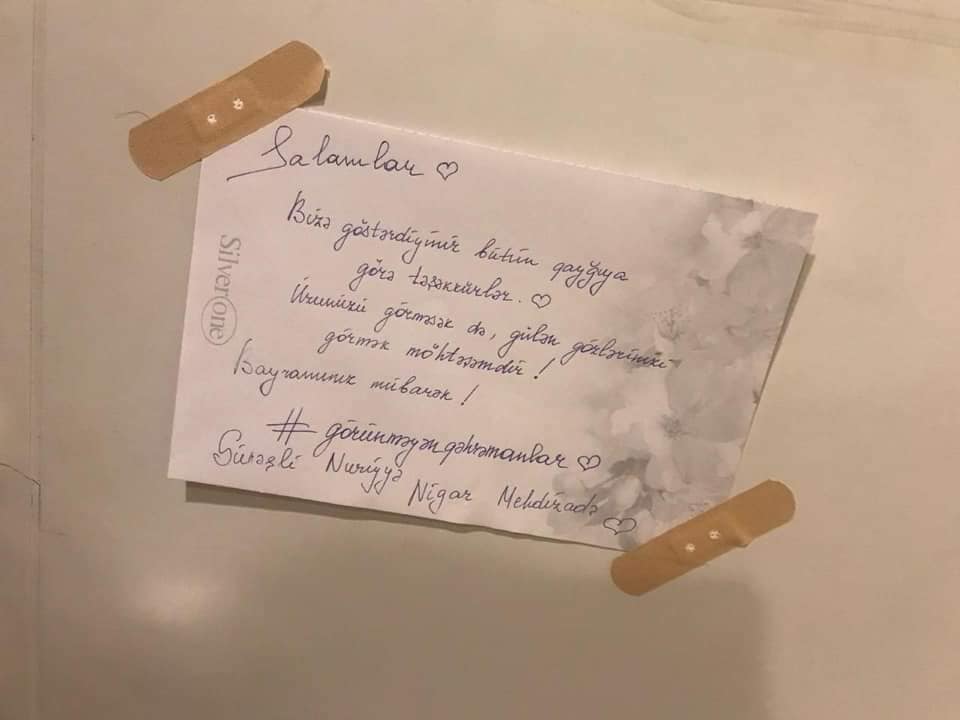 Salamlar ♡
Bizə göstərdiyiniz bütün qayğıya
görə təşəkkürlər. ♡
Üzünüzü görməsək də, gülən gözlərinizi
görmək möhtəşəmdir!
Bayramınız mübarək!
#görünməyənqəhrəmanlar ♡
Nuriyyə
Nigar Mehdizadə ♡
Silver one